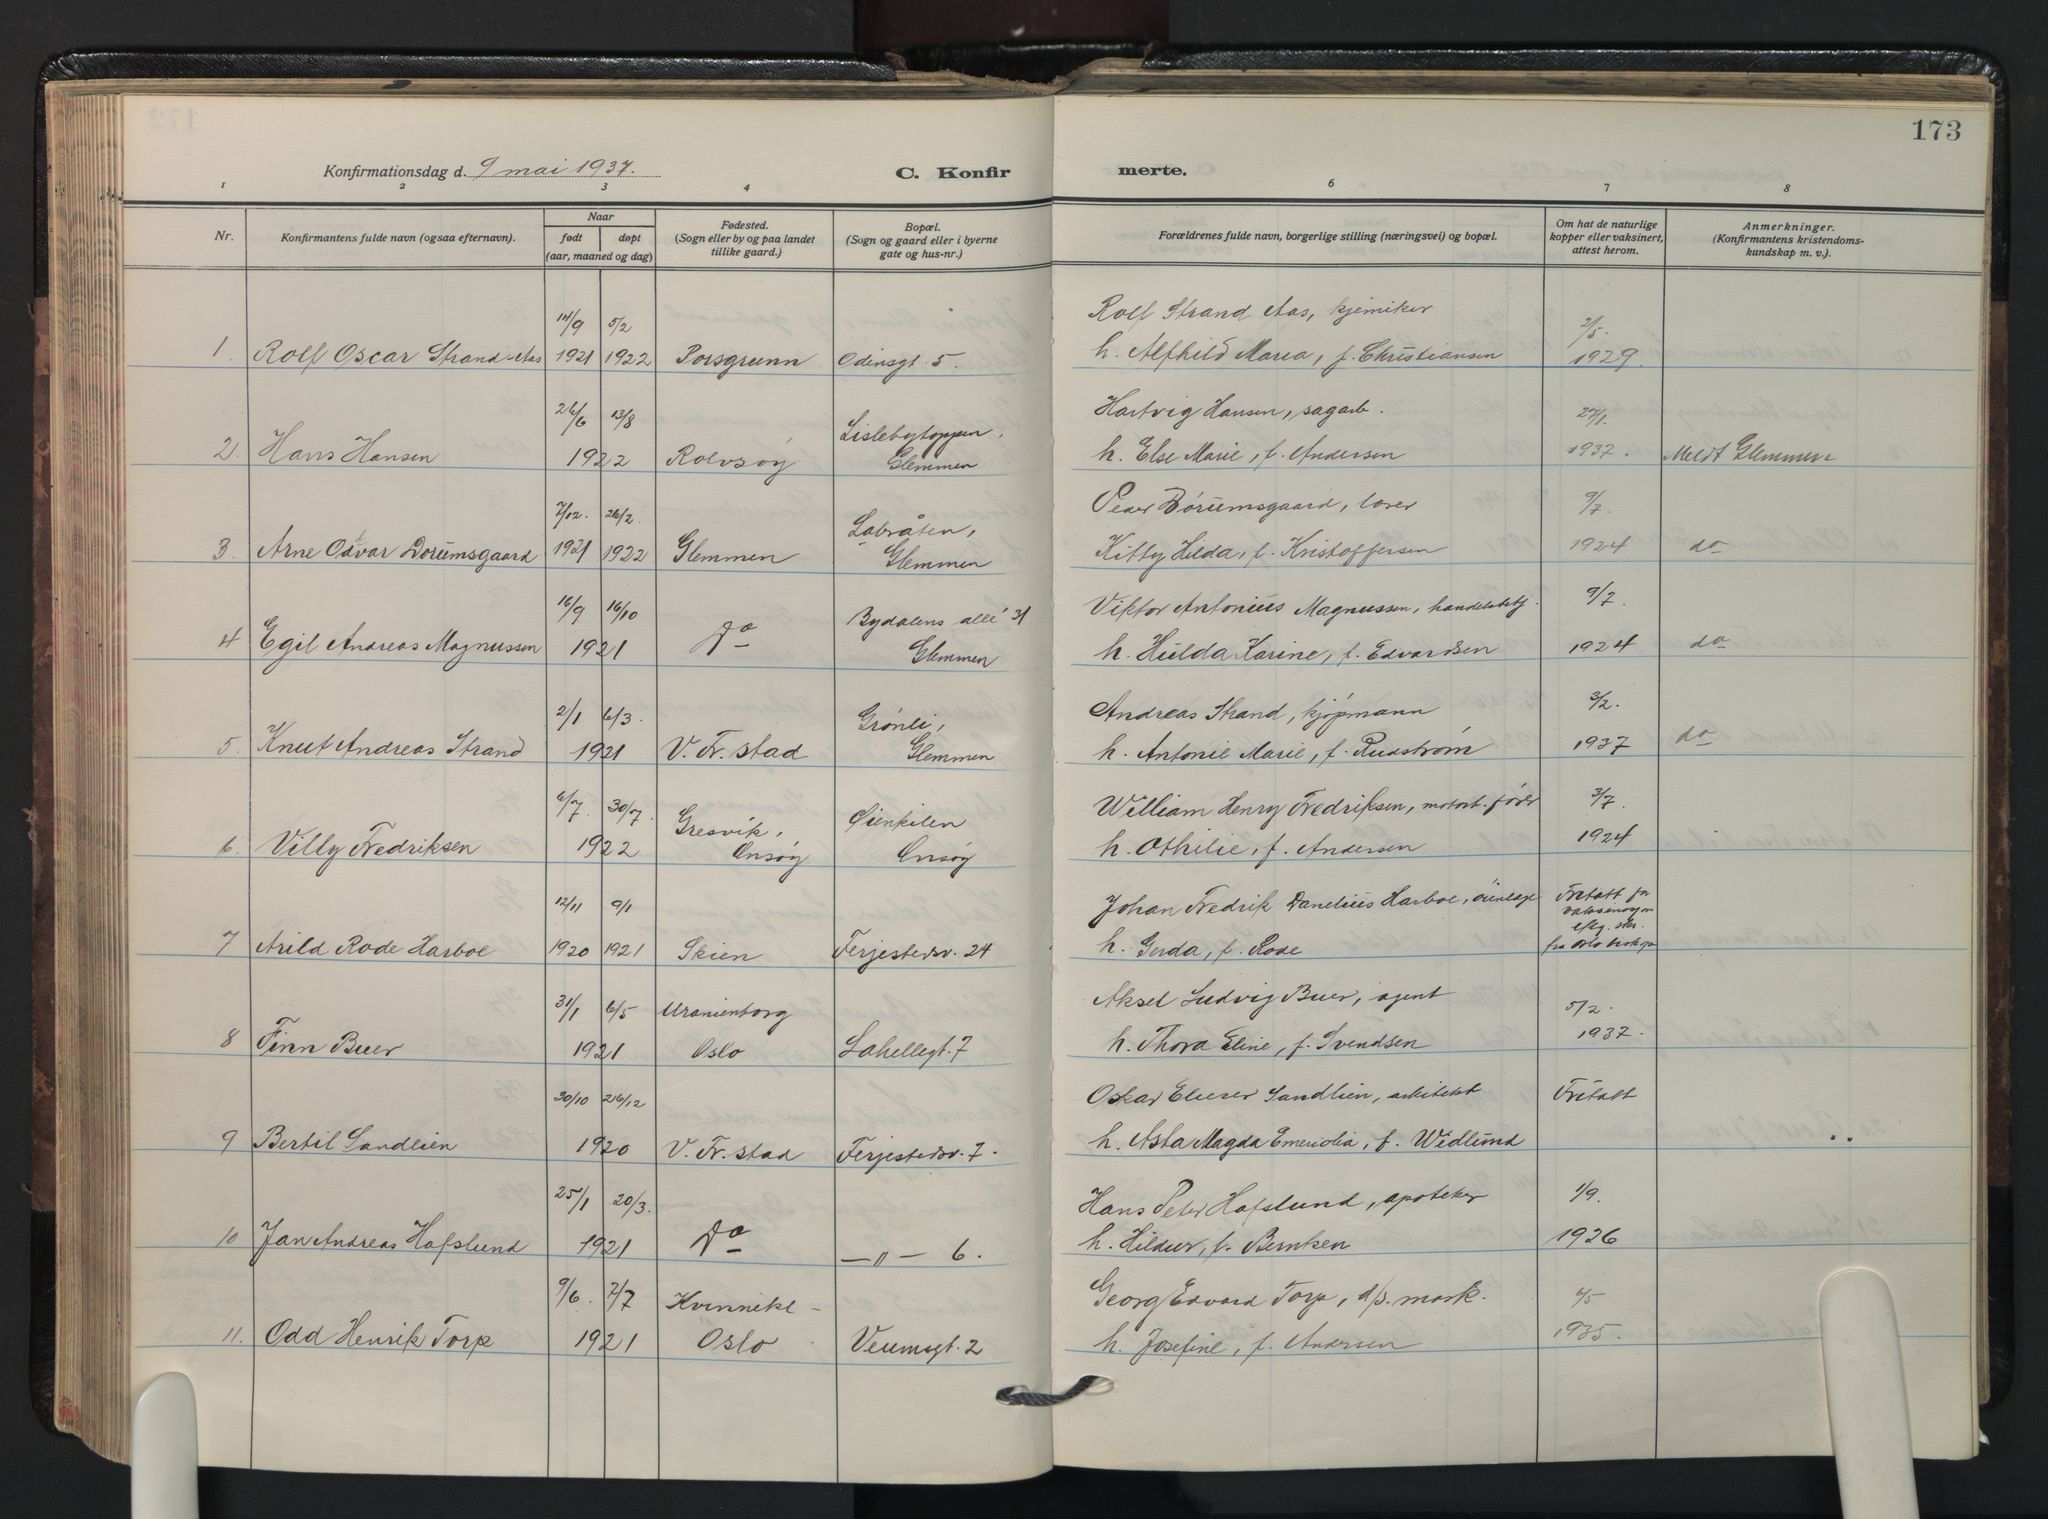 173
Konfirmationsdag d. 9 mai 1937. C. Konfirmerte.
1 2 3 4 5 6 7 8
Nr. Konfirmantens fulde navn (ogsaa efternavn). Naar født døpt (aar, maaned og dag) Fødested. (Sogn eller by og paa landet tillike gaard.) Bopæl. (Sogn og gaard eller i byerne gate og hus-nr.) Forældrenes fulde navn, borgerlige stilling (næringsvei) og bopæl. Om hat de naturlige kopper eller vaksinert, attest herom. Anmerkninger. (Konfirmantens kristendomskundskap m. v.).
14/9 5/2 Rolf Strand Aas, kjemiker 2/5.
1. Rolf Oscar Strand-Aas 1921 1922 Porsgrunn Odinsgt. 5. h. Alfhild Maria, f. Christiansen 1929
26/6 13/8 Lislebytoppen, Hartvig Hansen, sagarb. 27/1.
2. Hans Hansen 1922 Rolvsøy Glemmen h. Else Marie, f. Andersen 1937. Meldt Glemmen
7/12. 26/2. Labråten, Peder Dørumsgaard, lærer 9/7.
3. Arne Oddvar Dørumsgaard 1921 1922 Glemmen Glemmen Kitty Hilda, f. Kristoffersen 1924 do
16/9 16/10 Bydalens allé 31 Viktor Antonius Magnussen, handelsbetj. 9/7.
4 Egil Andreas Magnussen 1921 do Glemmen h. Hulda Karine, f. Edvardsen 1924 do
2/1 6/3. Grønli, Andreas Strand, kjøpmann 3/2.
5. Knut Andreas Strand 1921 V. Fr. stad Glemmen h. Antonie Marie, f. Rudstrøm 1937 do
6/7. 30/7. Gresvik, Øienkilen William Henry Fredriksen, motort. fører 3/7.
6. Villy Fredriksen 1922 Onsøy Onsøy h. Othilie, f. Andersen 1924
12/11 9/1 Johan Fredrik Danelius Harboe, øienlæge Fritatt for
7 Arild Rode Harboe 1920 1921 Skien Ferjestedsv. 24 h. Gerda, f. Rode fra Oslo
31/1 6/5 Uranienborg Aksel Ludvig Buer, agent 5/2.
8 Finn Buer 1921 Oslo Lahellegt. 7 h. Thora Eline, f. Svendsen 1937.
30/10 26/12 Oskar Elieser Sandlien, arkitekt Fritatt
9 Bertil Sandlien 1920 V. Fr. stad Ferjestedsv. 7. h. Asta Magda f. Widlund
25/1 20/3. Hans Peter Hafslund, apoteker 1/9.
10 Jan Andreas Hafslund 1921 do —"— 6. h. Hildur, f. Berntsen 1926
9/6. 7/7 Kvinnekl- Georg Edvard Torp, d/s. mask. 4/5
11. Odd Henrik Torp 1921 Oslo Veumsgt. 2 h. Josefine, f. Andersen 1935.